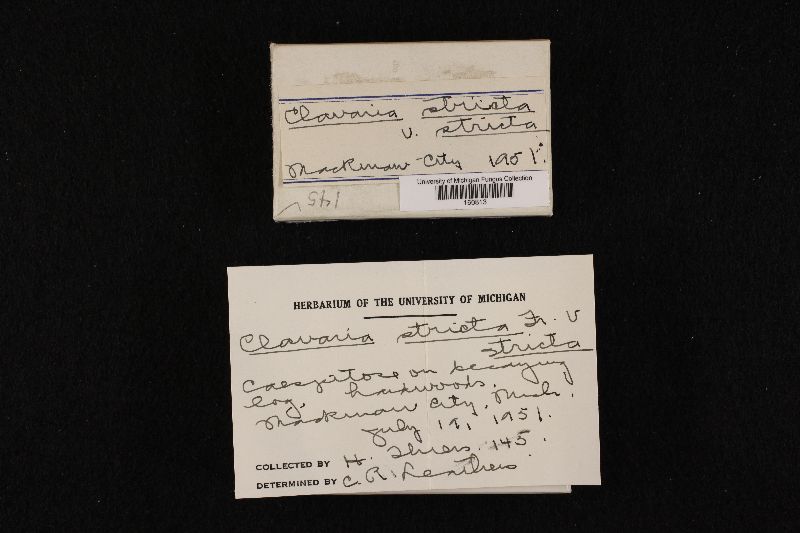 Clavaria stricta
v. stricta
Mackinaw City 1951.
University of Michigan Fungus Collection
160813
145
HERBARIUM OF THE UNIVERSITY OF MICHIGAN
Clavaria stricta Fr. v
stricta
Caespitose on decaying
log, hardwoods.
Mackinaw City, Mich.
July 19, 1951.
COLLECTED BY H. Thiers 145.
DETERMINED BY C. R. Leathers